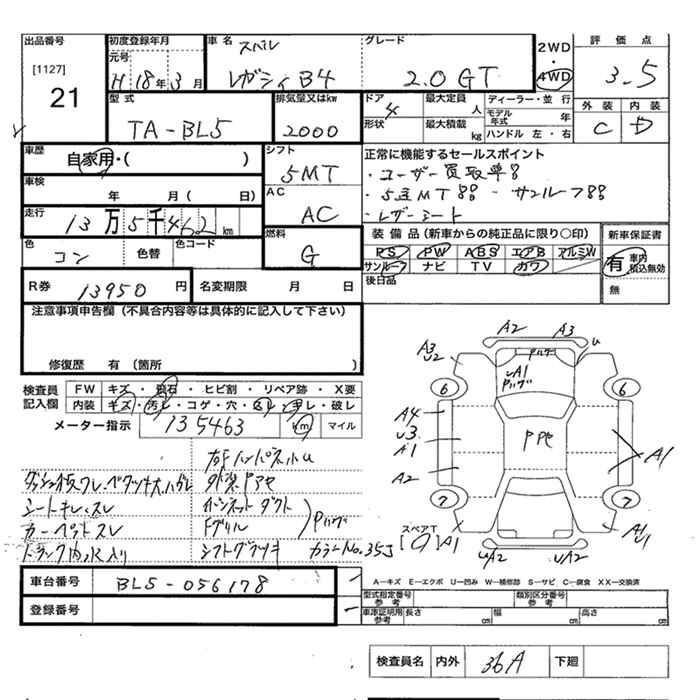 出品番号 [1127] 21
初度登録年月 元号 H 18 年 3 月
車名 スバル レガシィB4
グレード 2.0 GT
2WD・4WD
評価点 3.5
外装 内装
C D
型式 TA-BL5
排気量又はkw 2000
ドア 4
形状
最大定員 人
最大積載 kg
ディーラー・並行
モデル年式 年
ハンドル 左・右
車歴 自家用・( )
シフト 5MT
車検 年 月 ( 日)
AC AC
走行 13万5千462 km
燃料 G
色 コン 色替 色コード
R券 13950 円
名変期限 月 日
正常に機能するセールスポイント
・ユーザー買取車!!
・5速MT!! ・サンルーフ!!
・レザーシート
装備品(新車からの純正品に限り○印)
PS PW ABS エアB アルミW
サンルーフ ナビ TV カワ
後日品
新車保証書
有 車内積込無効
無
注意事項申告欄(不具合内容等は具体的に記入して下さい)
修復歴 有 (箇所 )
検査員記入欄
FW キズ・飛石・ヒビ割・リペア跡・X要
内装 キズ・汚レ・コゲ・穴・スレ・キレ・破レ
メーター指示 135463 km マイル
外装ドアモ
シートキレ、スレ
ボンネットダクト
カーペットスレ
Fグリル
トランク内水入り
シフトグラツキ カラーNo.35J
A2 A3 U
A3 U2
UA1
PPモ
6 6
A4
U3
A1
A2
A1
7 7
スペアT [9]
A1
UA2 UA2
A1 U1
A―キズ E―エクボ U―凹み W―補修跡 S―サビ C―腐食 XX―交換済
車台番号 BL5-056178
登録番号
型式指定番号 参考
類別区分番号 参考
車庫証明用 参考 長さ cm 幅 cm 高さ cm
検査員名 内外 36A 下廻